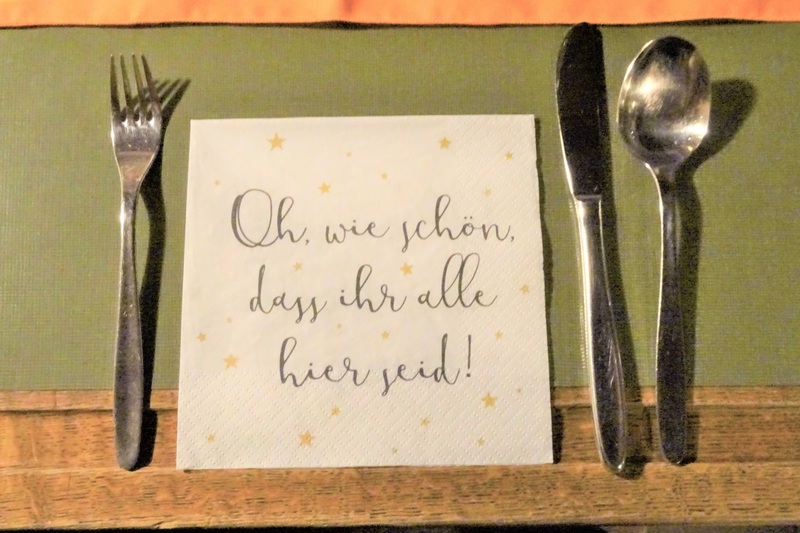 Oh, wie schön,
dass ihr alle
hier seid!